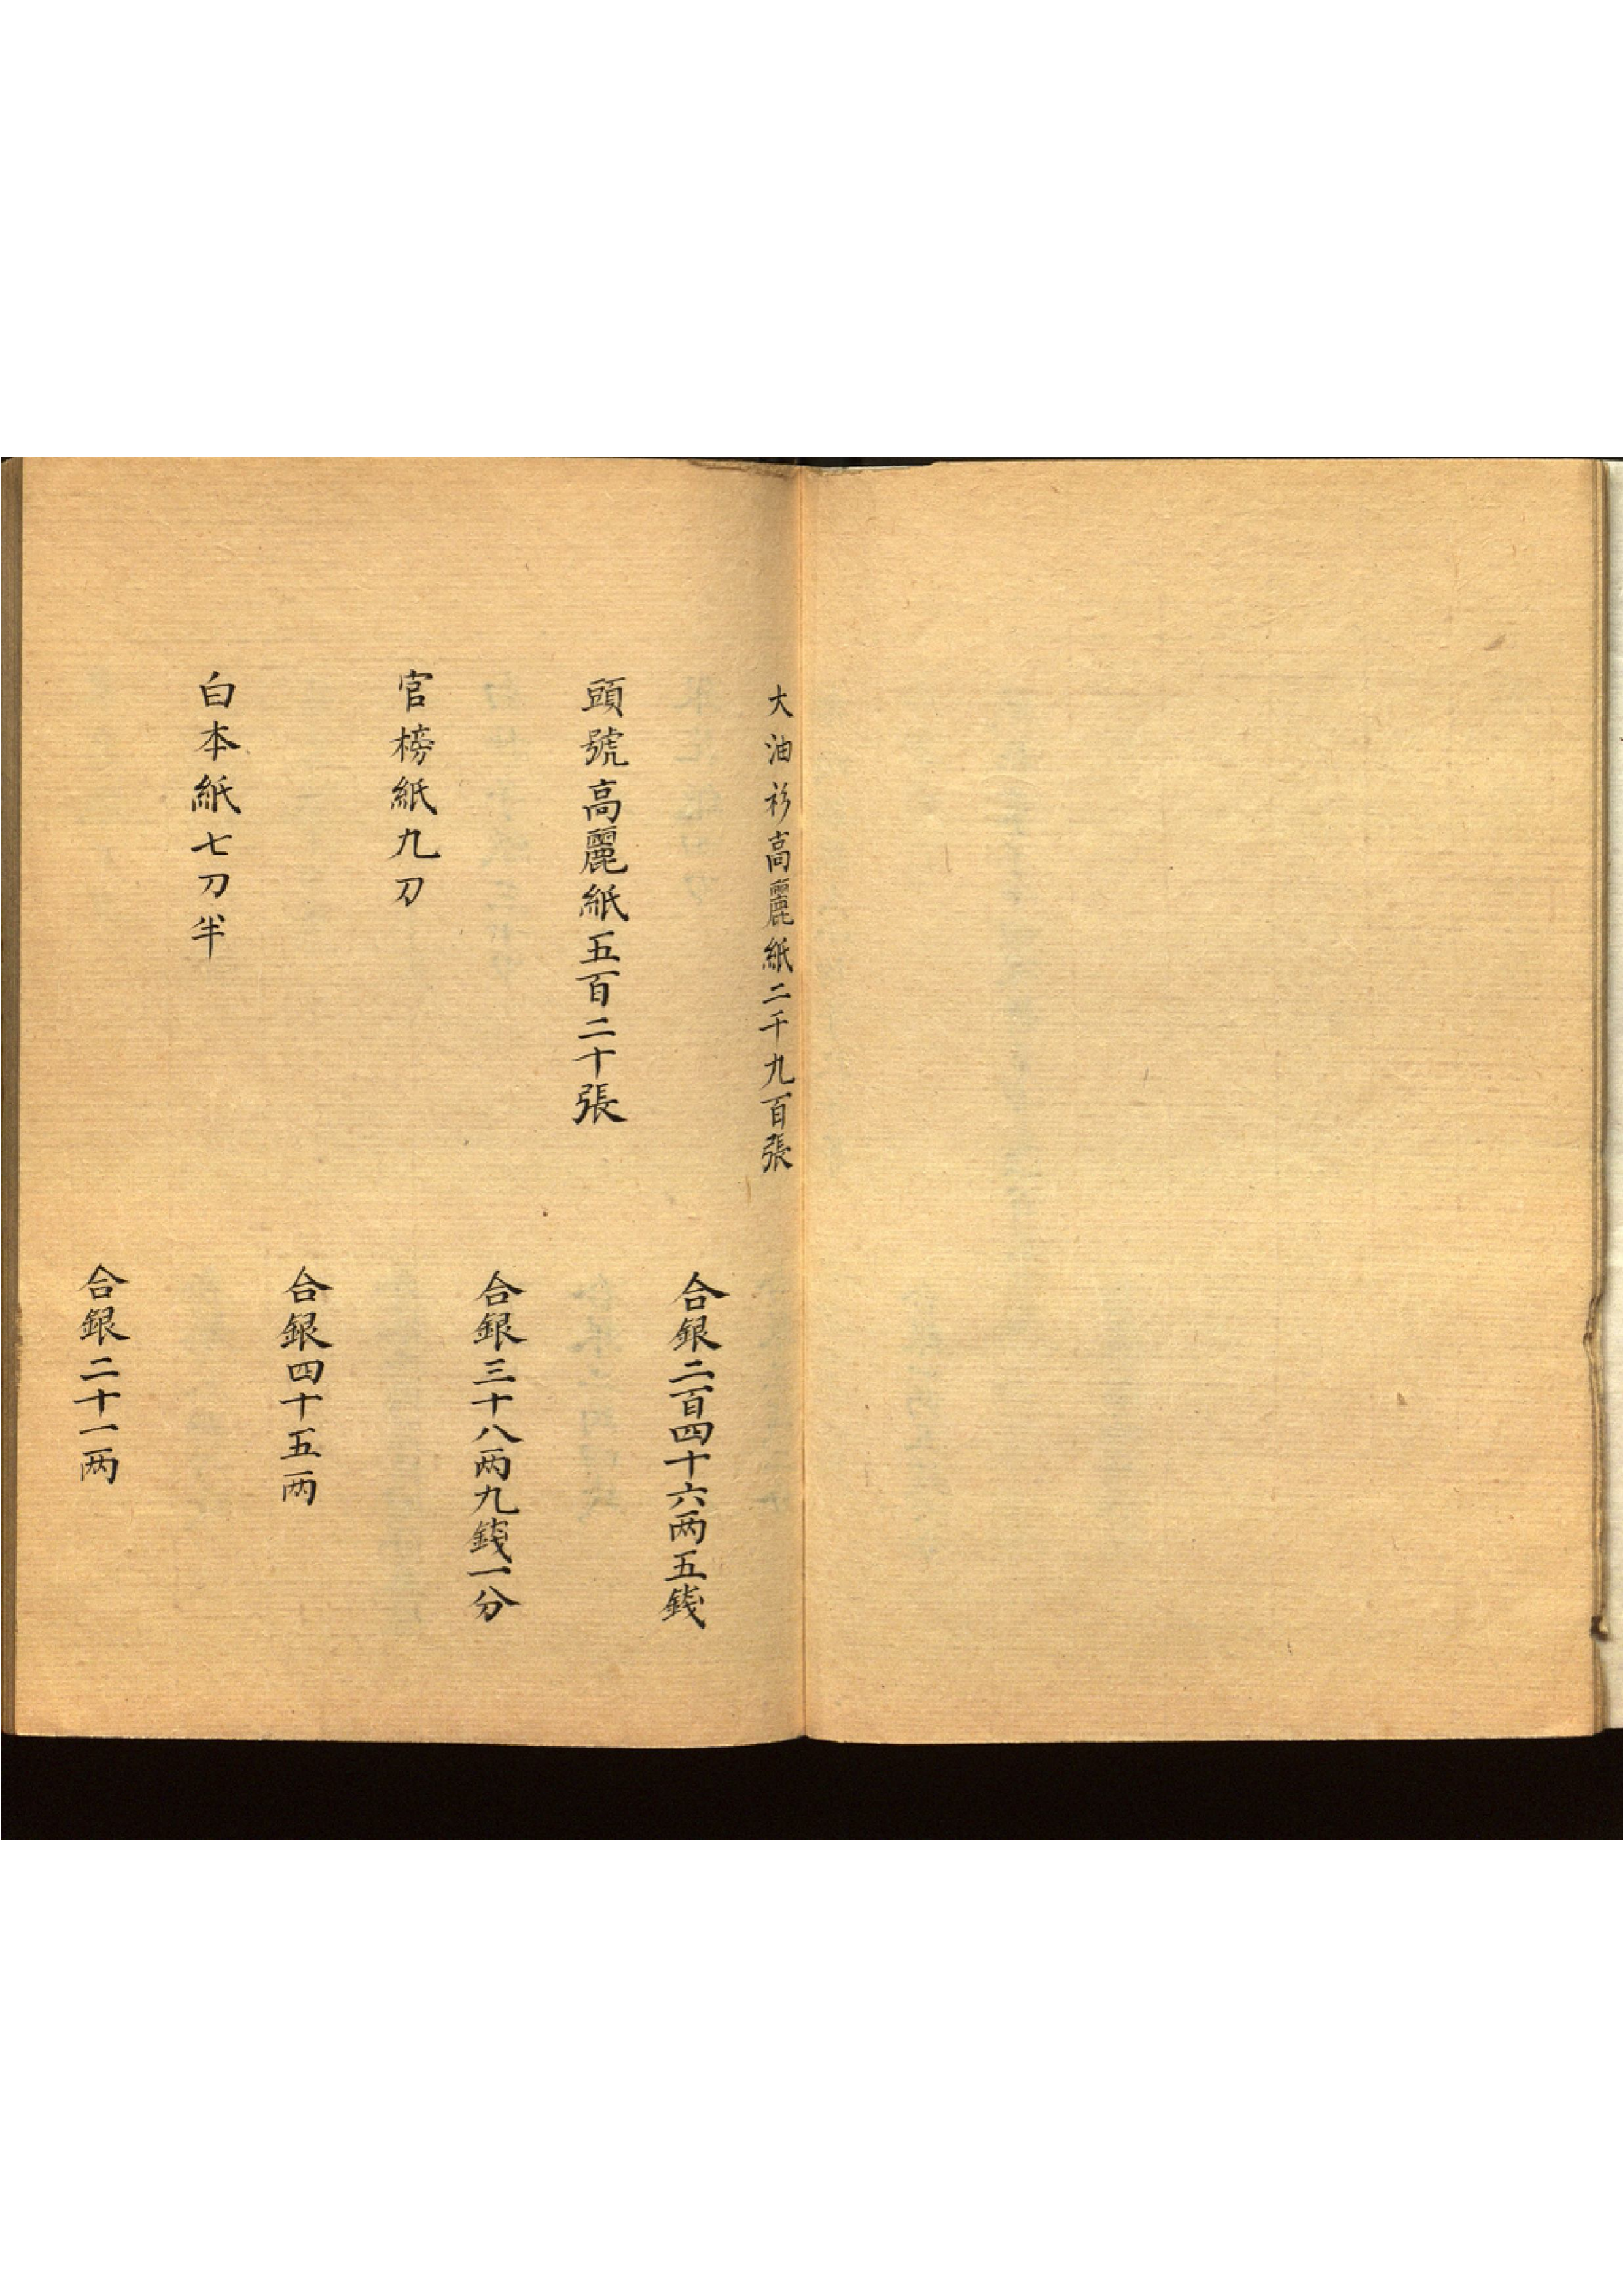 大油衫高麗紙二千九百張
合銀二百四十六两五錢
頭號高麗紙五百二十張
合銀三十八两九錢一分
官榜紙九刀
合銀四十五两
白本紙七刀半
合銀二十一两